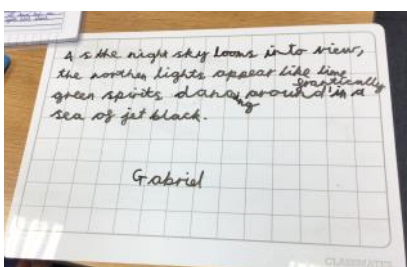 As the night sky looms into view,
the northen lights appear like lime
frantically
green spirits dancing around in a
sea of jet black.
Gabriel
CLASSMATES